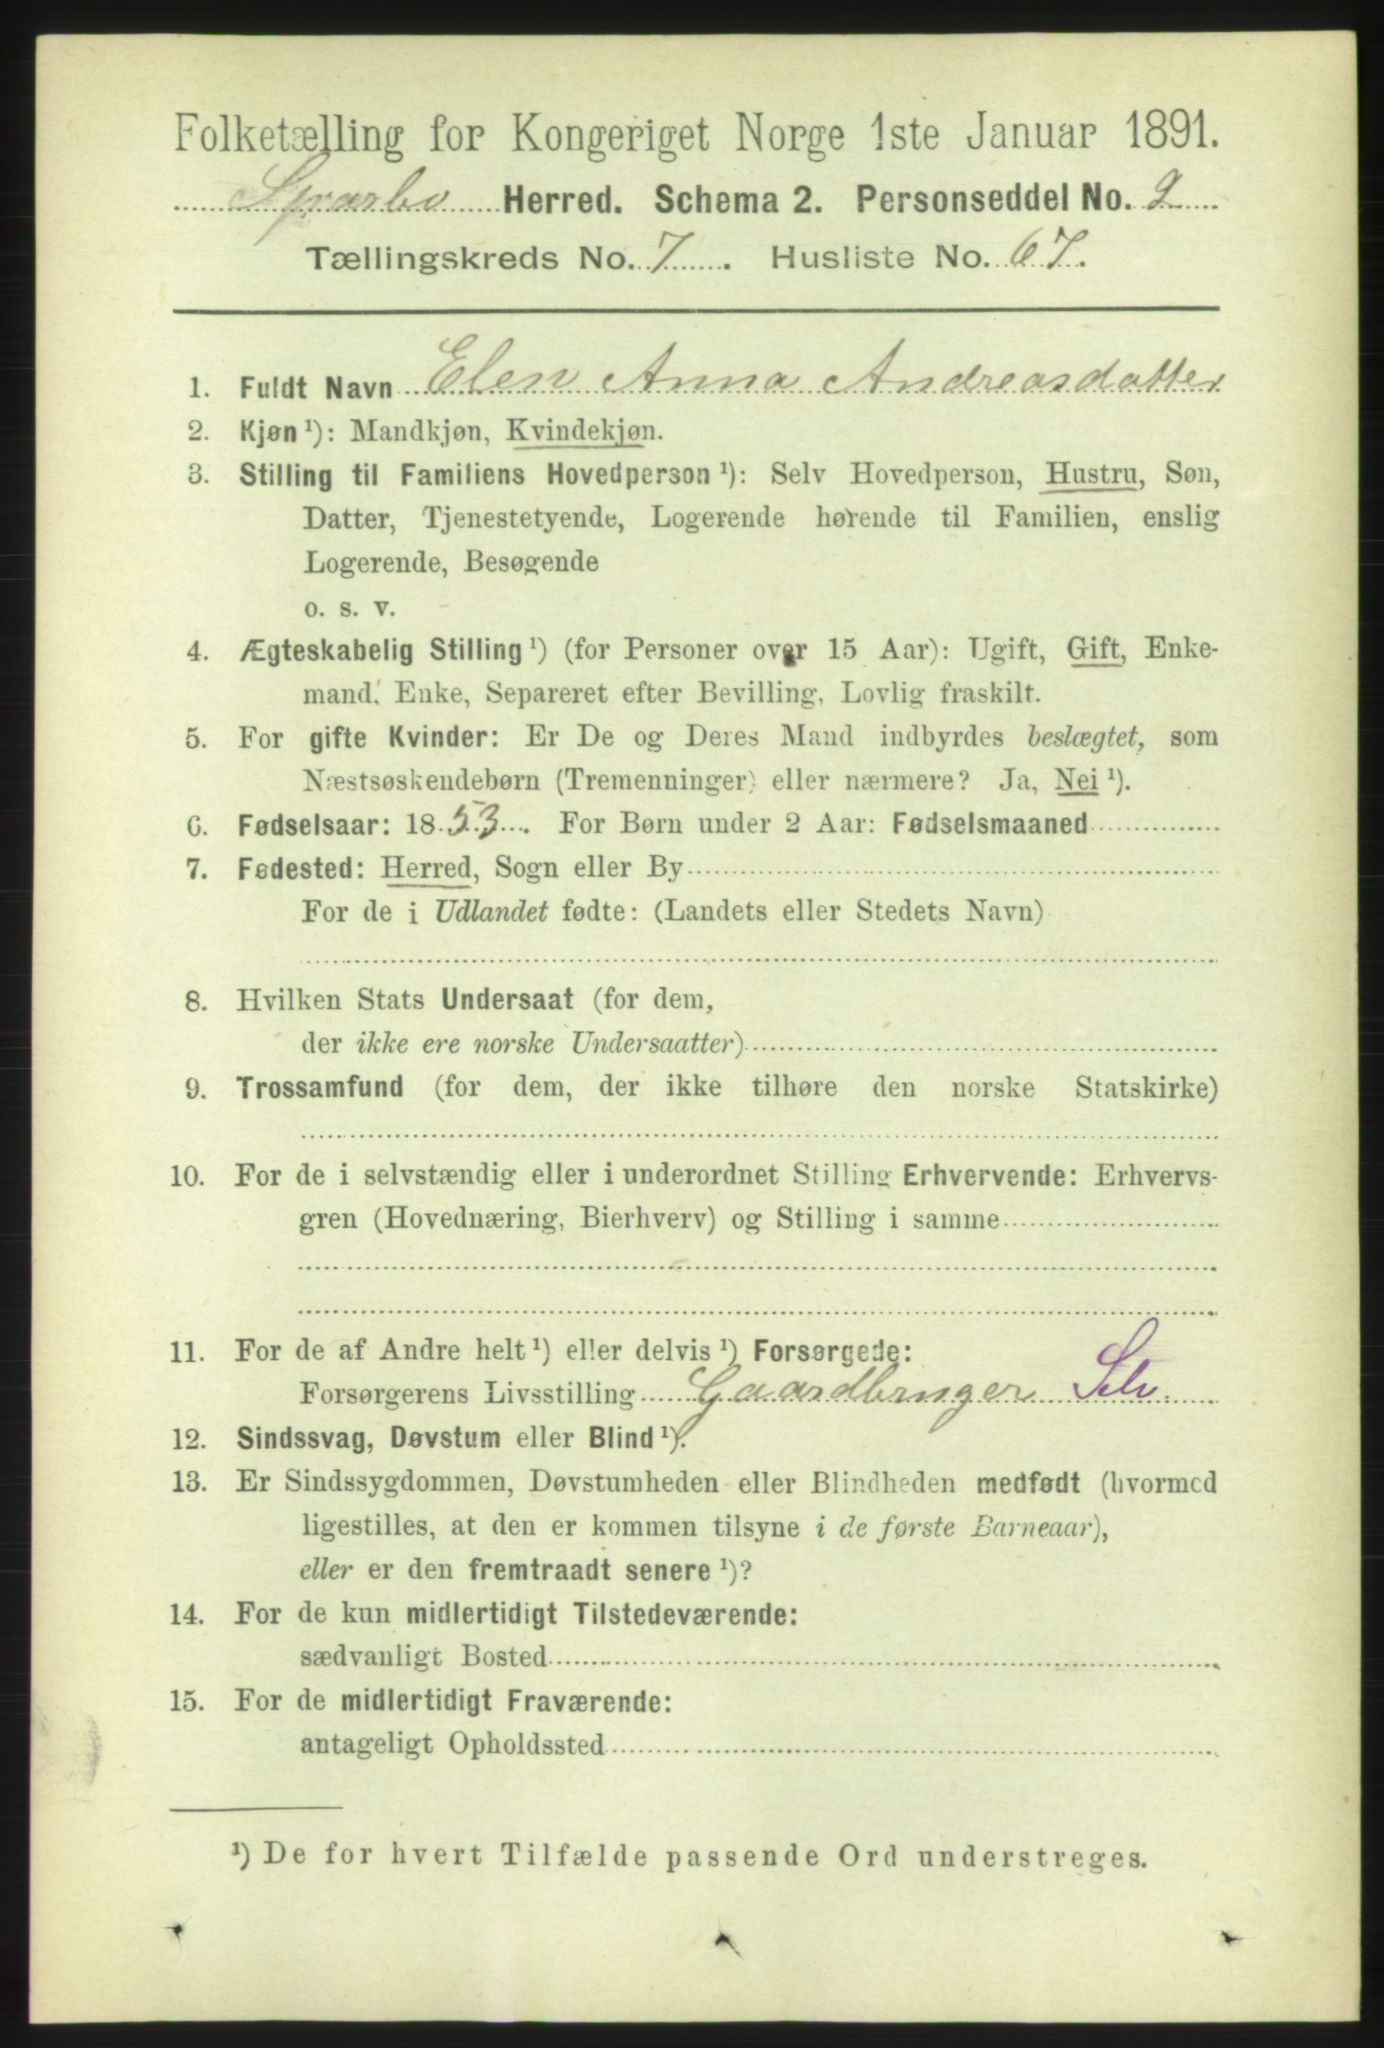 Folketælling for Kongeriget Norge 1ste Januar 1891.
Sparbo Herred. Schema 2. Personseddel No. 2
Tællingskreds No. 7. Husliste No. 67.
1. Fuldt Navn Elen Anna Andreasdatter
2. Kjøn¹): Mandkjøn, Kvindekjøn.
3. Stilling til Familiens Hovedperson¹): Selv Hovedperson, Hustru, Søn,
Datter, Tjenestetyende, Logerende hørende til Familien, enslig
Logerende, Besøgende
o. s. v.
4. Ægteskabelig Stilling¹) (for Personer over 15 Aar): Ugift, Gift, Enke-
mand, Enke, Separeret efter Bevilling, Lovlig fraskilt.
5. For gifte Kvinder: Er De og Deres Mand indbyrdes beslægtet, som
Næstsøskendebørn (Tremenninger) eller nærmere? Ja, Nei¹).
6. Fødselsaar: 1853. For Børn under 2 Aar: Fødselsmaaned
7. Fødested: Herred, Sogn eller By
For de i Udlandet fødte: (Landets eller Stedets Navn)
8. Hvilken Stats Undersaat (for dem,
der ikke ere norske Undersaatter)
9. Trossamfund (for dem, der ikke tilhøre den norske Statskirke)
10. For de i selvstændig eller i underordnet Stilling Erhvervende: Erhvervs-
gren (Hovednæring, Bierhverv) og Stilling i samme
11. For de af Andre helt¹) eller delvis¹) Forsørgede:
Forsørgerens Livsstilling Gaardbruger Selv.
12. Sindssvag, Døvstum eller Blind¹).
13. Er Sindssygdommen, Døvstumheden eller Blindheden medfødt (hvormed
ligestilles, at den er kommen tilsyne i de første Barneaar),
eller er den fremtraadt senere¹)?
14. For de kun midlertidigt Tilstedeværende:
sædvanligt Bosted
15. For de midlertidigt Fraværende:
antageligt Opholdssted
¹) De for hvert Tilfælde passende Ord understreges.